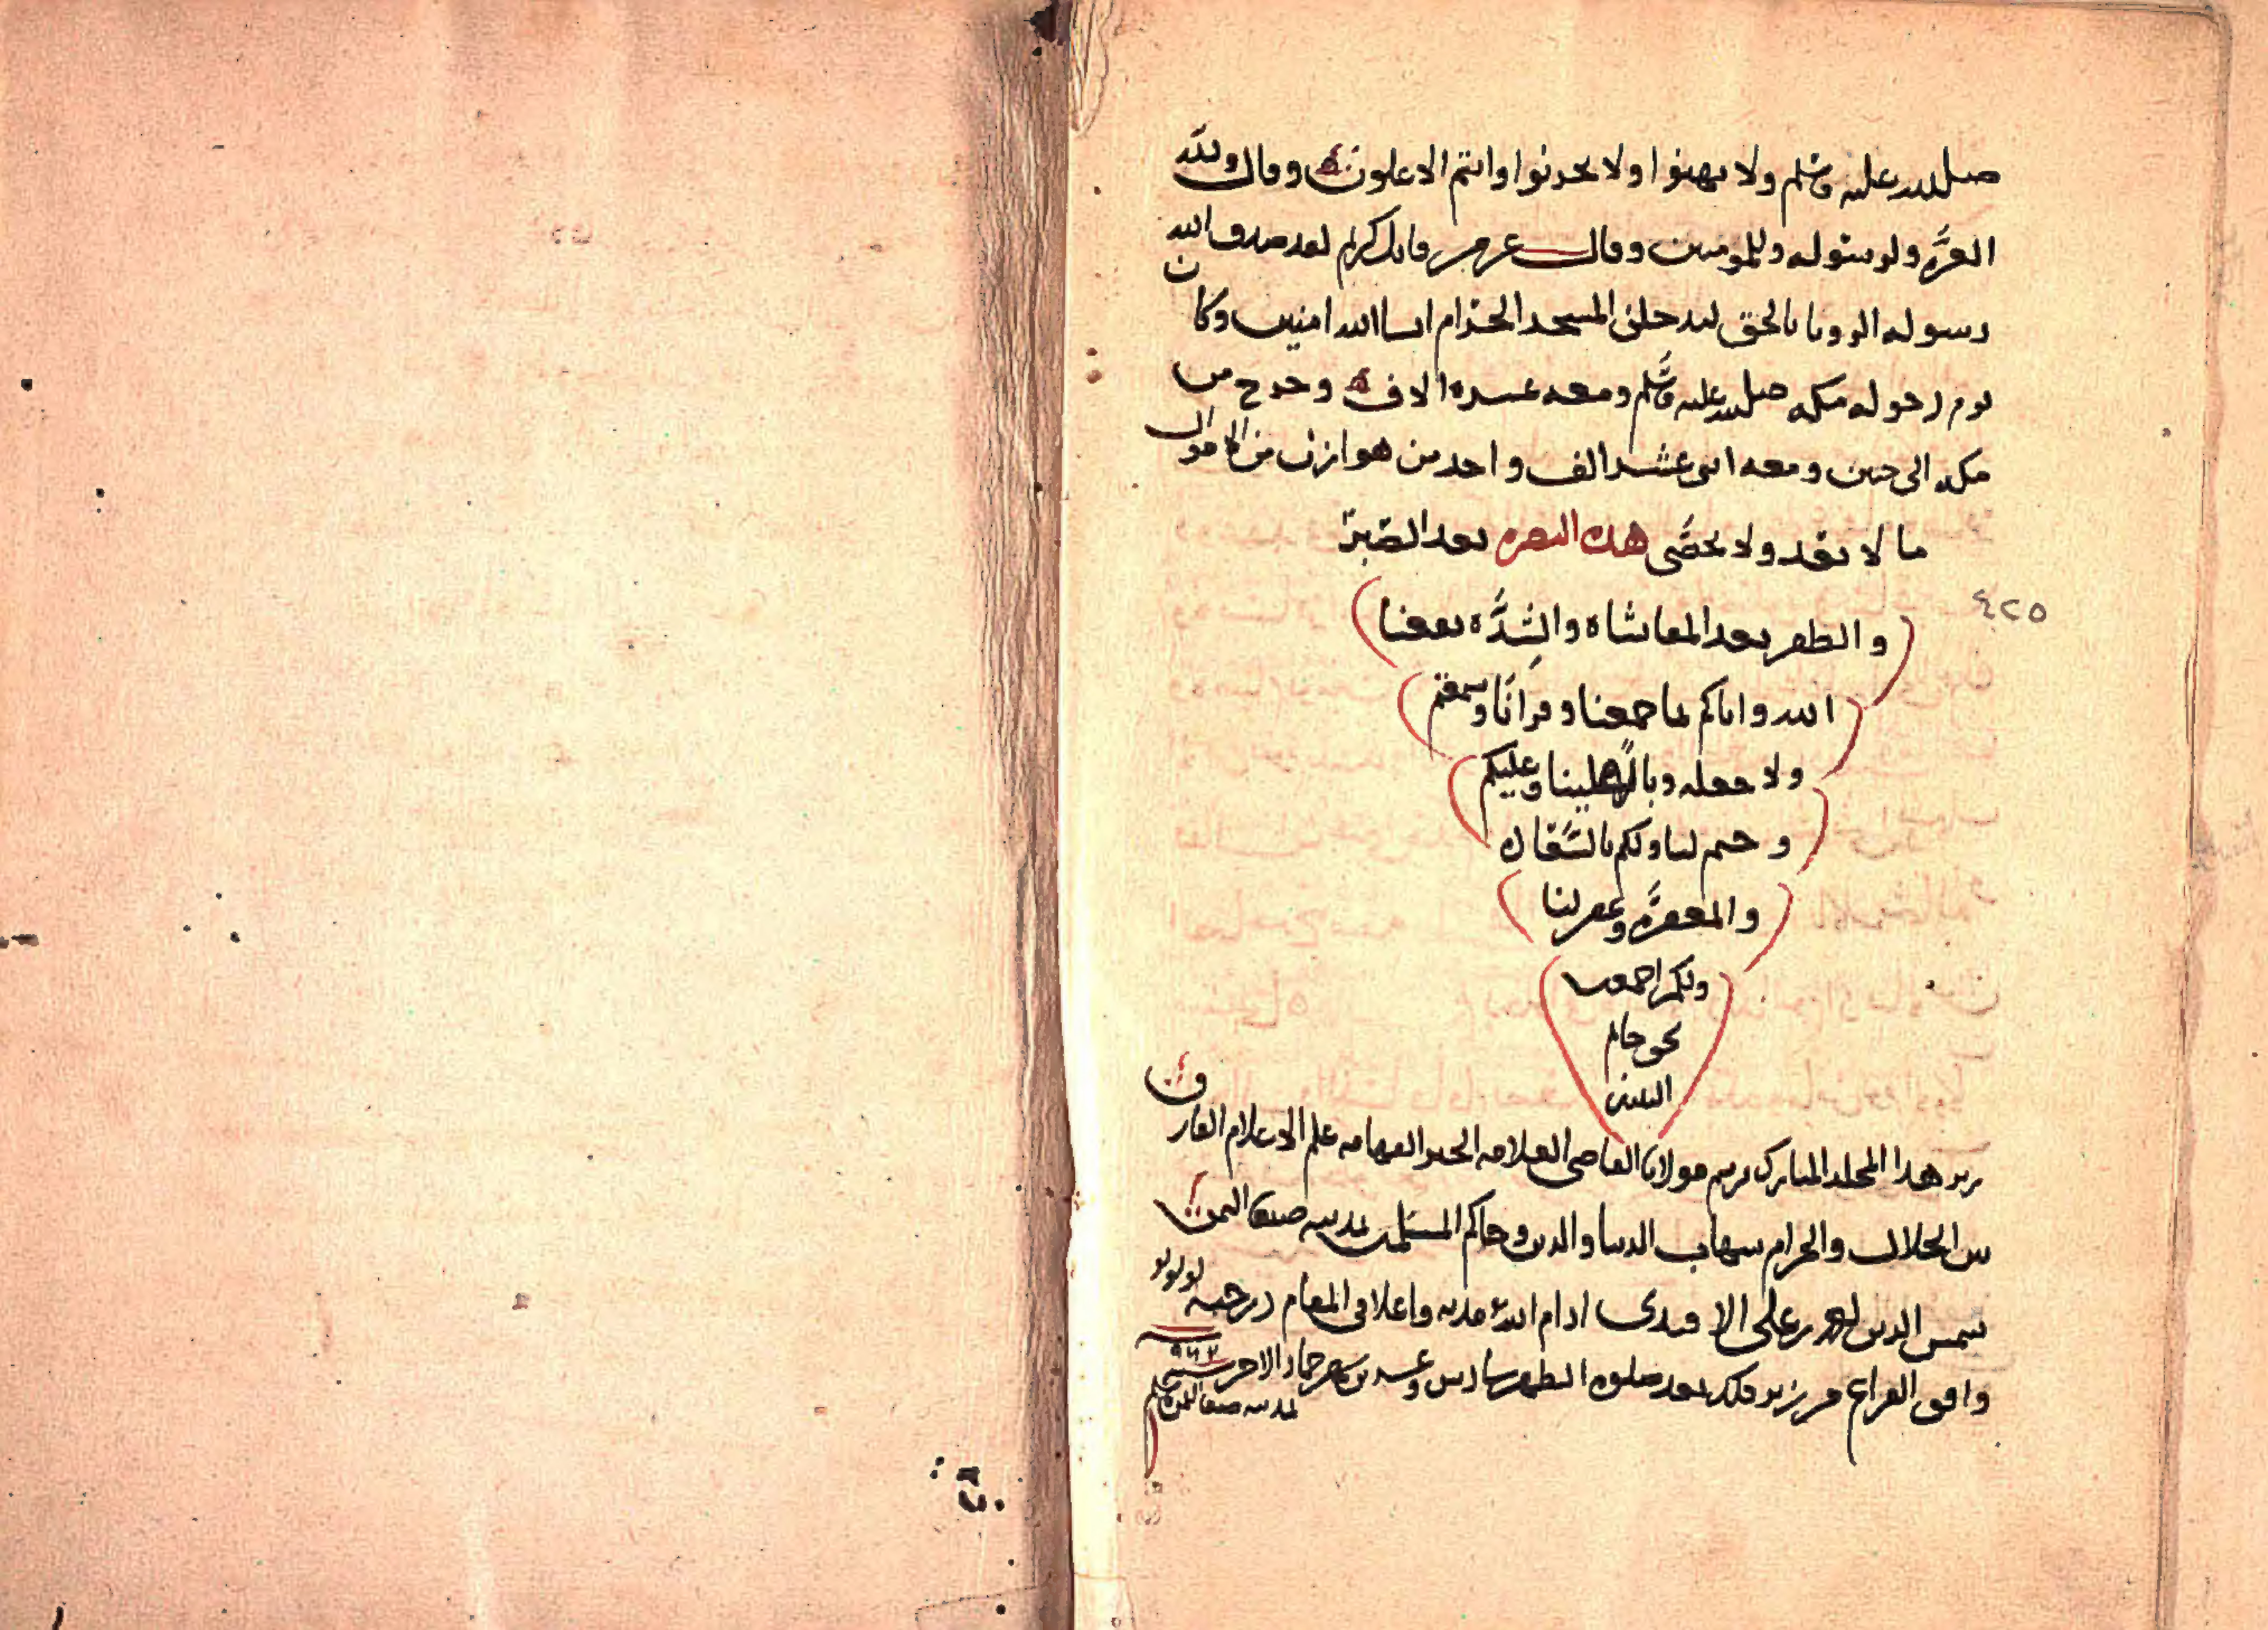 صلى الله عليه وسلم ولا تهنوا ولا تحزنوا وانتم الاعلون وقال ولله
العزة ولرسوله وللمومنين وقال عز من قايل كريم لقد صدق الله
رسوله الرويا بالحق لتدخلن المسجد الحرام ان شا الله امنين وكان
يوم دخوله مكه صلى الله عليه وسلم ومعه عشره الاف وخرج من
مكه الى حنين ومعه اثنى عشر الف واخذ من هوازن من الاموال
ما لا يعد ولا يحصى هذه النصره بعد الصبر
٤٢٥
والظفر بعد المعاشاه والشده نفعنا
الله واياكم بما جمعنا وقرانا وسمعتم
ولا جعله وبالا علينا وعليكم
وختم لنا ولكم بالسعاده
والمغفره وغفر لنا
ولكم اجمعين
بحق خاتم
النبيين
هذا المجلد المبارك برسم مولانا القاضي العلامه الحبر الفهامه علم الاعلام الفارق
بين الحلال والحرام شهاب الدنيا والدين وحاكم المسلمين بمدينه صنعا اليمن
شمس الدين احمد بن علي الافندي ادام الله واعلا في المقام درجته
وافق الفراغ من زبر ذلك بعد صلوه الظهر سادس وعشرين شهر جماد الاخر سنه
٩٦٢
بمدينه صنعا اليمن